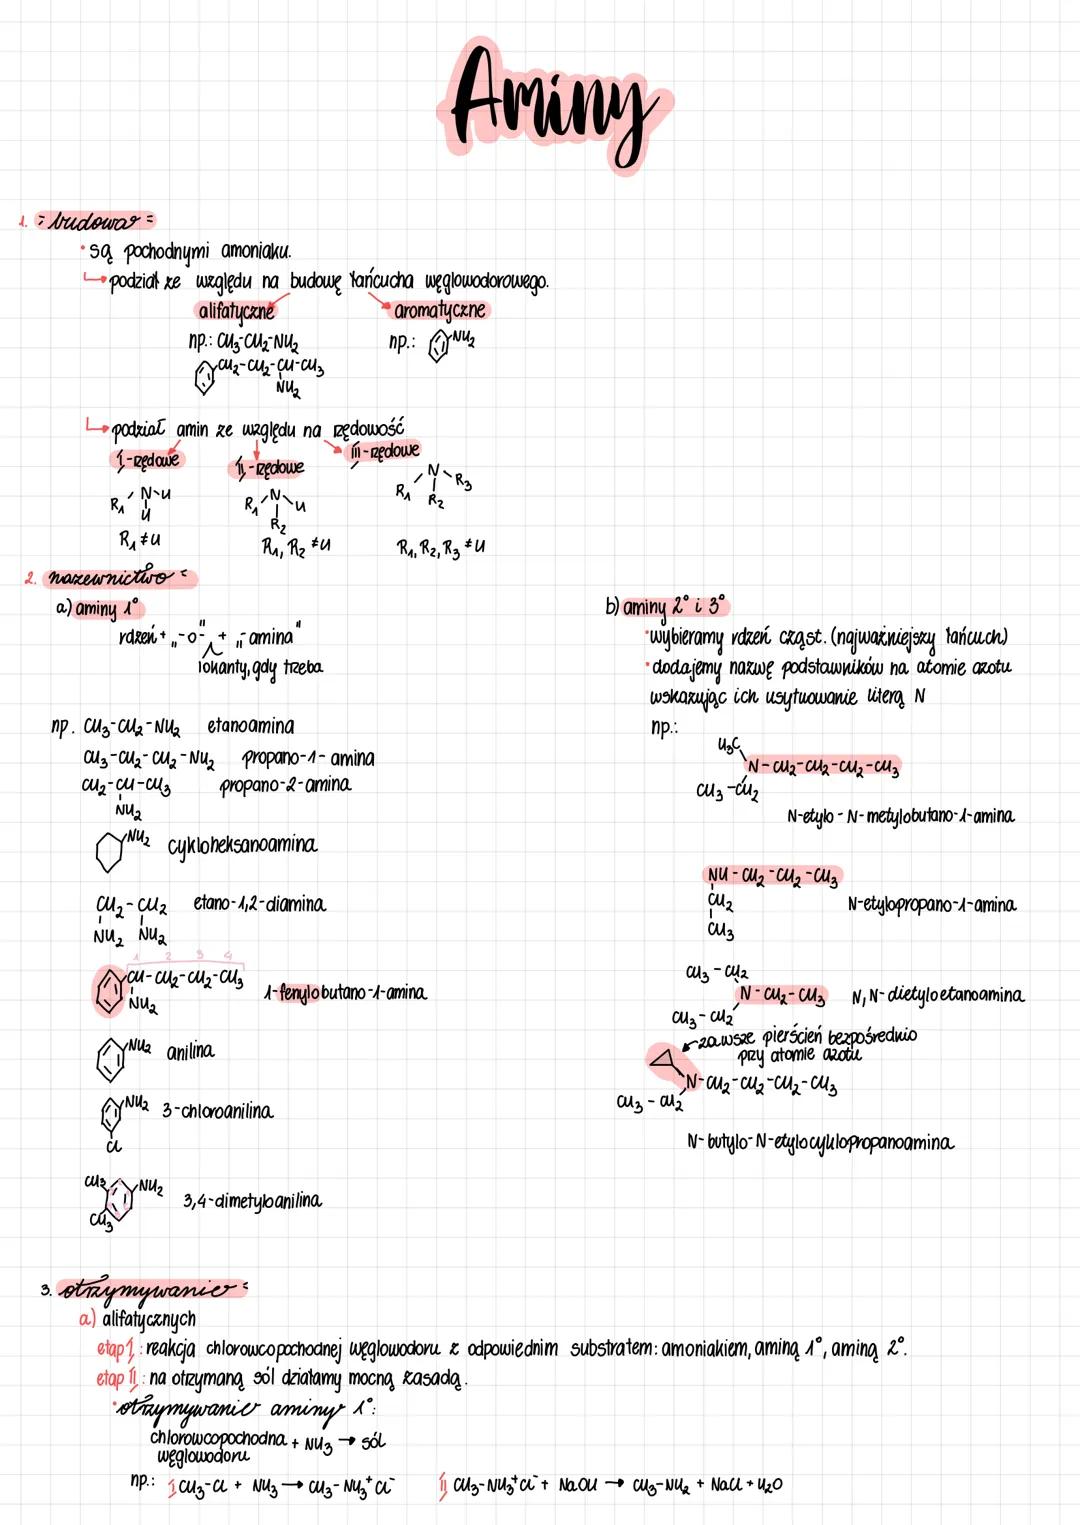 Aminy
1. budowa
• są pochodnymi amoniaku.
↳ podział ze względu na budowę łańcucha węglowodorowego.
alifatyczne aromatyczne
np.: CH₃-CH₂-NH₂ np.: NH₂
CH₂-CH₂-CH-CH₃
NH₂
↳ podział amin ze względu na rzędowość
I-rzędowe II-rzędowe III-rzędowe
R₁ N H H R₁ N H R₂ R₁ N R₃ R₂
R₁ ≠ H R₁, R₂ ≠ H R₁, R₂, R₃ ≠ H
2. nazewnictwo
a) aminy 1°
rdzeń + „-o-" + „-amina"
lokanty, gdy trzeba
np. CH₃-CH₂-NH₂ etanoamina
CH₃-CH₂-CH₂-NH₂ propano-1-amina
CH₂-CH-CH₃ propano-2-amina
NH₂
NH₂ cykloheksanoamina
CH₂-CH₂ etano-1,2-diamina
NH₂ NH₂
1 2 3 4
CH-CH₂-CH₂-CH₃ 1-fenylobutano-1-amina
NH₂
NH₂ anilina
NH₂ 3-chloroanilina
Cl
CH₃ NH₂ 3,4-dimetyloanilina
CH₃
b) aminy 2° i 3°
• wybieramy rdzeń cząst. (najważniejszy łańcuch)
• dodajemy nazwę podstawników na atomie azotu
wskazując ich usytuowanie literą N
np.:
H₃C
N-CH₂-CH₂-CH₂-CH₃
CH₃-CH₂
N-etylo-N-metylobutano-1-amina
NH-CH₂-CH₂-CH₃
CH₂ N-etylopropano-1-amina
CH₃
CH₃-CH₂
N-CH₂-CH₃ N,N-dietyloetanoamina
CH₃-CH₂
zawsze pierścień bezpośrednio
przy atomie azotu
N-CH₂-CH₂-CH₂-CH₃
CH₃-CH₂
N-butylo-N-etylocyklopropanoamina
3. otrzymywanie
a) alifatycznych
etap I: reakcja chlorowcopochodnej węglowodoru z odpowiednim substratem: amoniakiem, aminą 1°, aminą 2°.
etap II: na otrzymaną sól działamy mocną zasadą.
• otrzymywanie aminy 1°:
chlorowcopochodna + NH₃ → sól
węglowodoru
np.: I CH₃-Cl + NH₃ → CH₃-NH₃⁺Cl⁻ II CH₃-NH₃⁺Cl⁻ + NaOH → CH₃-NH₂ + NaCl + H₂O